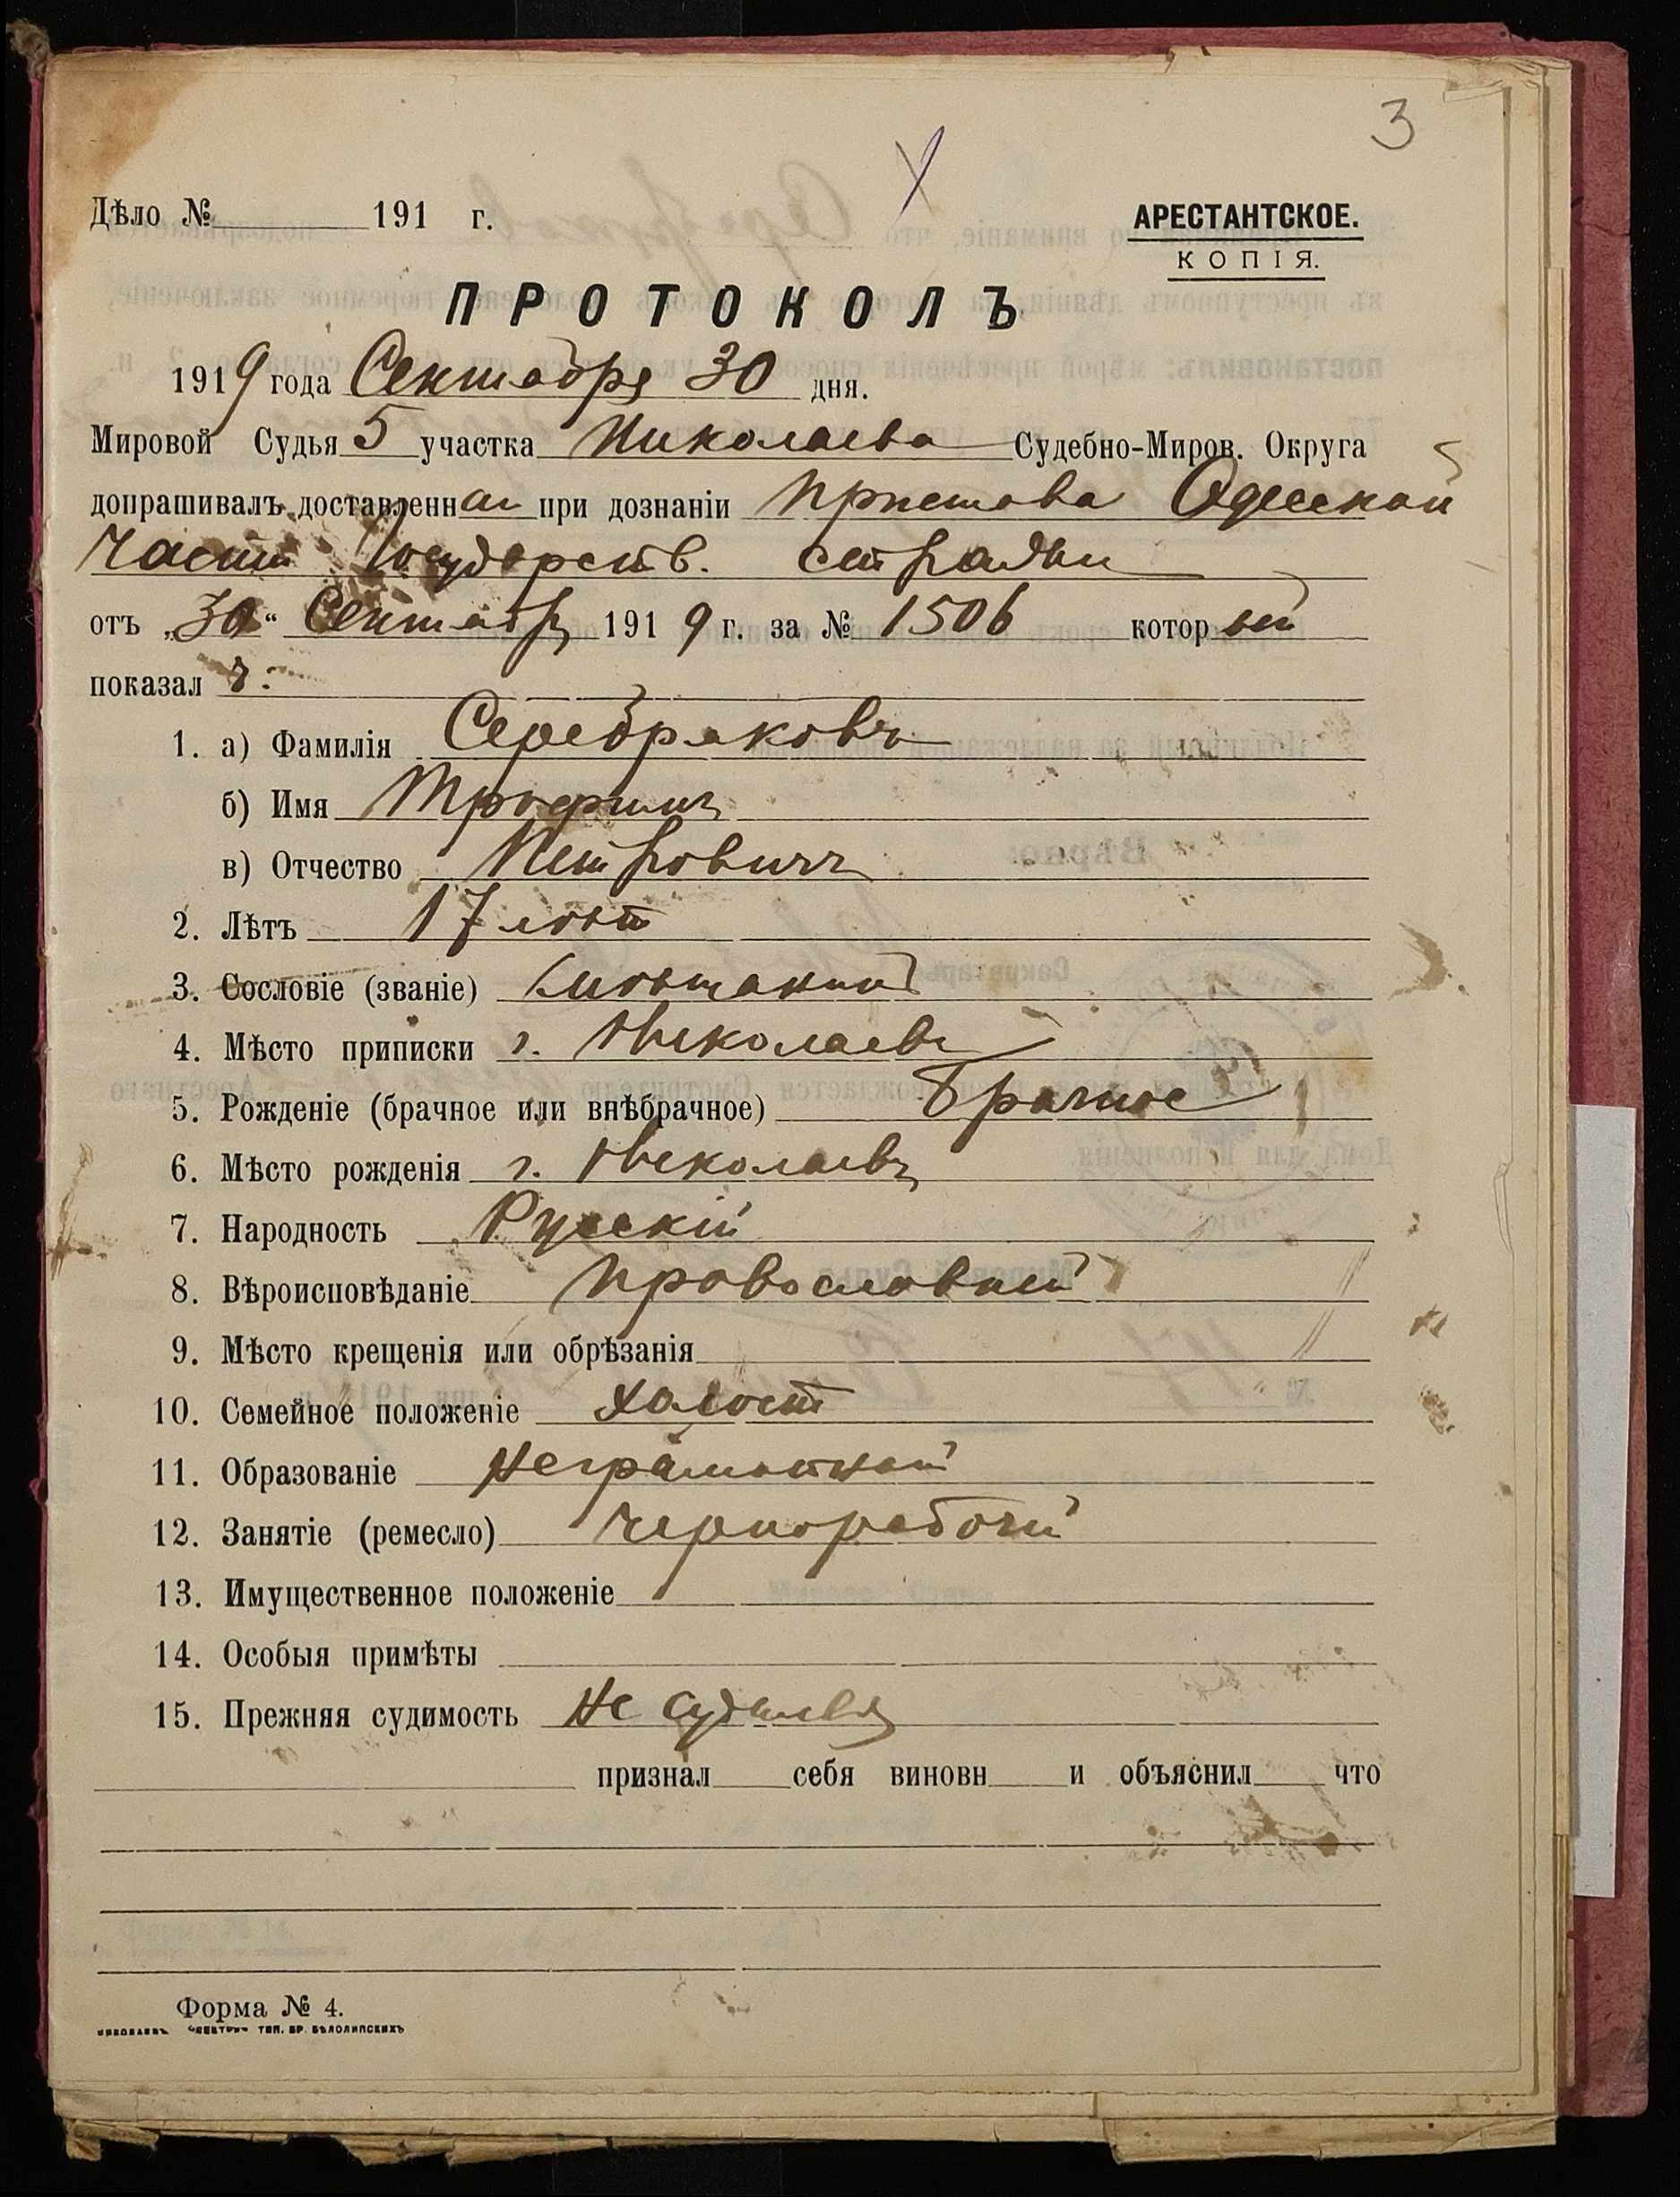 3
Дѣло № 191 г.
АРЕСТАНТСКОЕ.
КОПІЯ.
ПРОТОКОЛЪ
1919 года Сентября 30 дня.
Мировой Судья 5 участка Николаева Судебно-Миров. Округа
допрашивалъ доставленнаго при дознаніи Пристава Одесской
Части Государств. стражи
отъ „30“ Сентября 1919 г. за № 1506 который
показалъ:
1. а) Фамилія Серебряковъ
б) Имя Трофимъ
в) Отчество Петровичъ
2. Лѣтъ 17 лѣтъ
3. Сословіе (званіе) мѣщанинъ
4. Мѣсто приписки г. Николаевъ
5. Рожденіе (брачное или внѣбрачное) Брачное
6. Мѣсто рожденія г. Николаевъ
7. Народность Русскій
8. Вѣроисповѣданіе Православный
9. Мѣсто крещенія или обрѣзанія
10. Семейное положеніе Холостъ
11. Образованіе Неграмотный
12. Занятіе (ремесло) Чернорабочій
13. Имущественное положеніе
14. Особыя примѣты
15. Прежняя судимость Не судился
признал себя виновн и объяснил что
Форма № 4.
НИКОЛАЕВЪ ТИП. БР. БѢЛОЛИПСКИХЪ